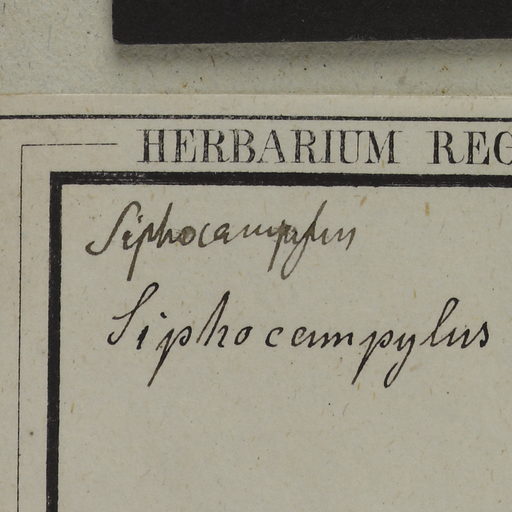 HERBARIUM REG
Siphocampylus
Siphocampylus